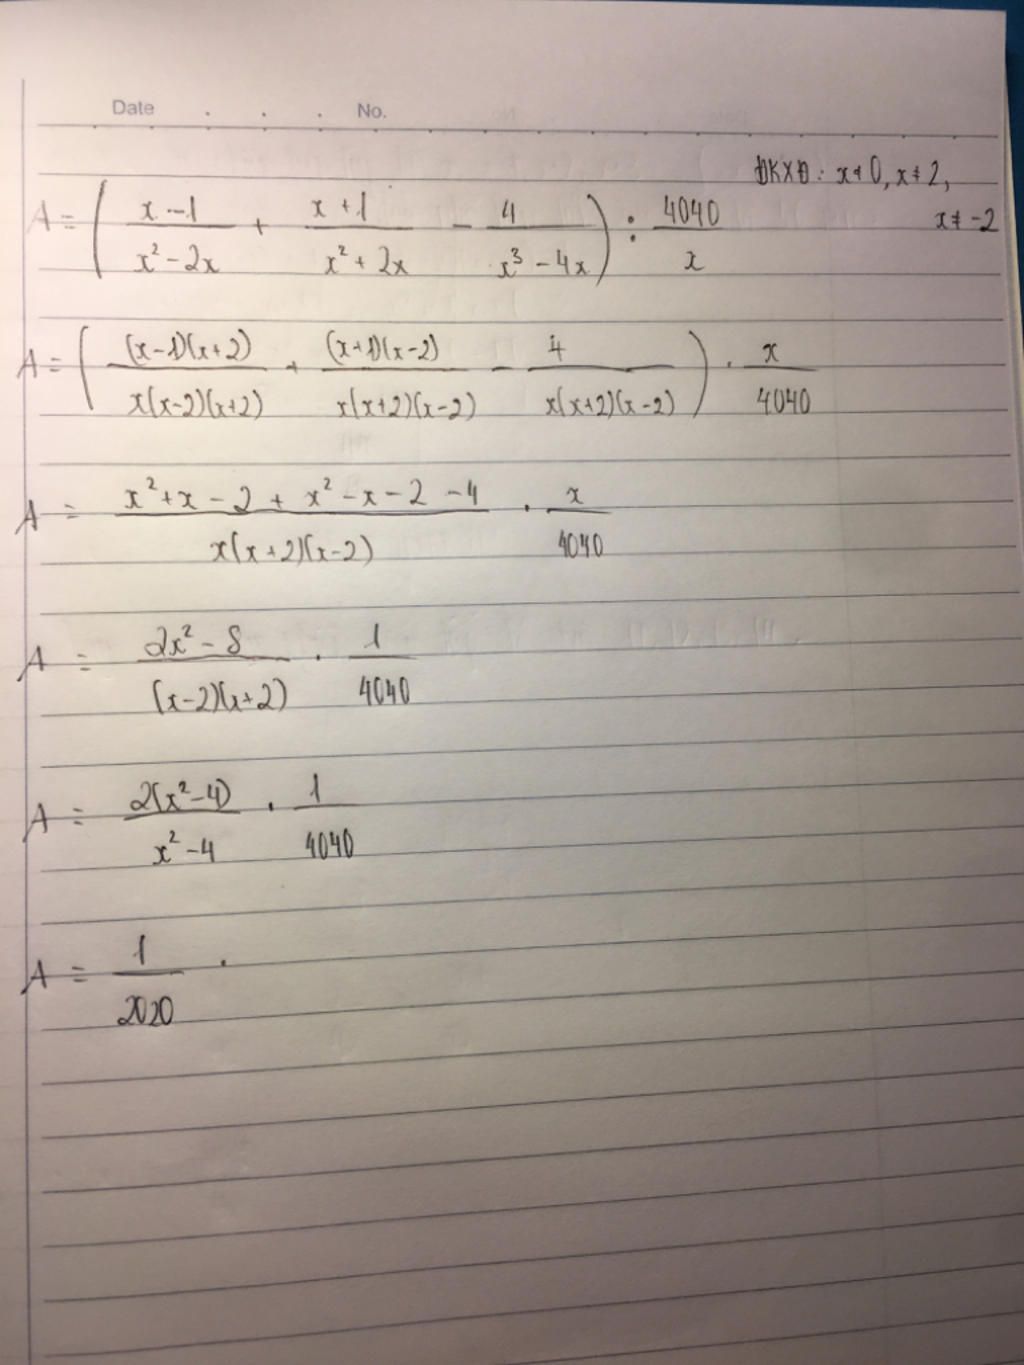 Date . . . No.
ĐKXĐ: x ≠ 0, x ≠ 2,
x ≠ -2
A = ( (x - 1)/(x² - 2x) + (x + 1)/(x² + 2x) - 4/(x³ - 4x) ) : 4040/x
A = ( (x-1)(x+2)/x(x-2)(x+2) + (x+1)(x-2)/x(x+2)(x-2) - 4/x(x+2)(x-2) ) . x/4040
A = (x² + x - 2 + x² - x - 2 - 4)/x(x+2)(x-2) . x/4040
A = (2x² - 8)/(x-2)(x+2) . 1/4040
A = 2(x² - 4)/(x² - 4) . 1/4040
A = 1/2020 .